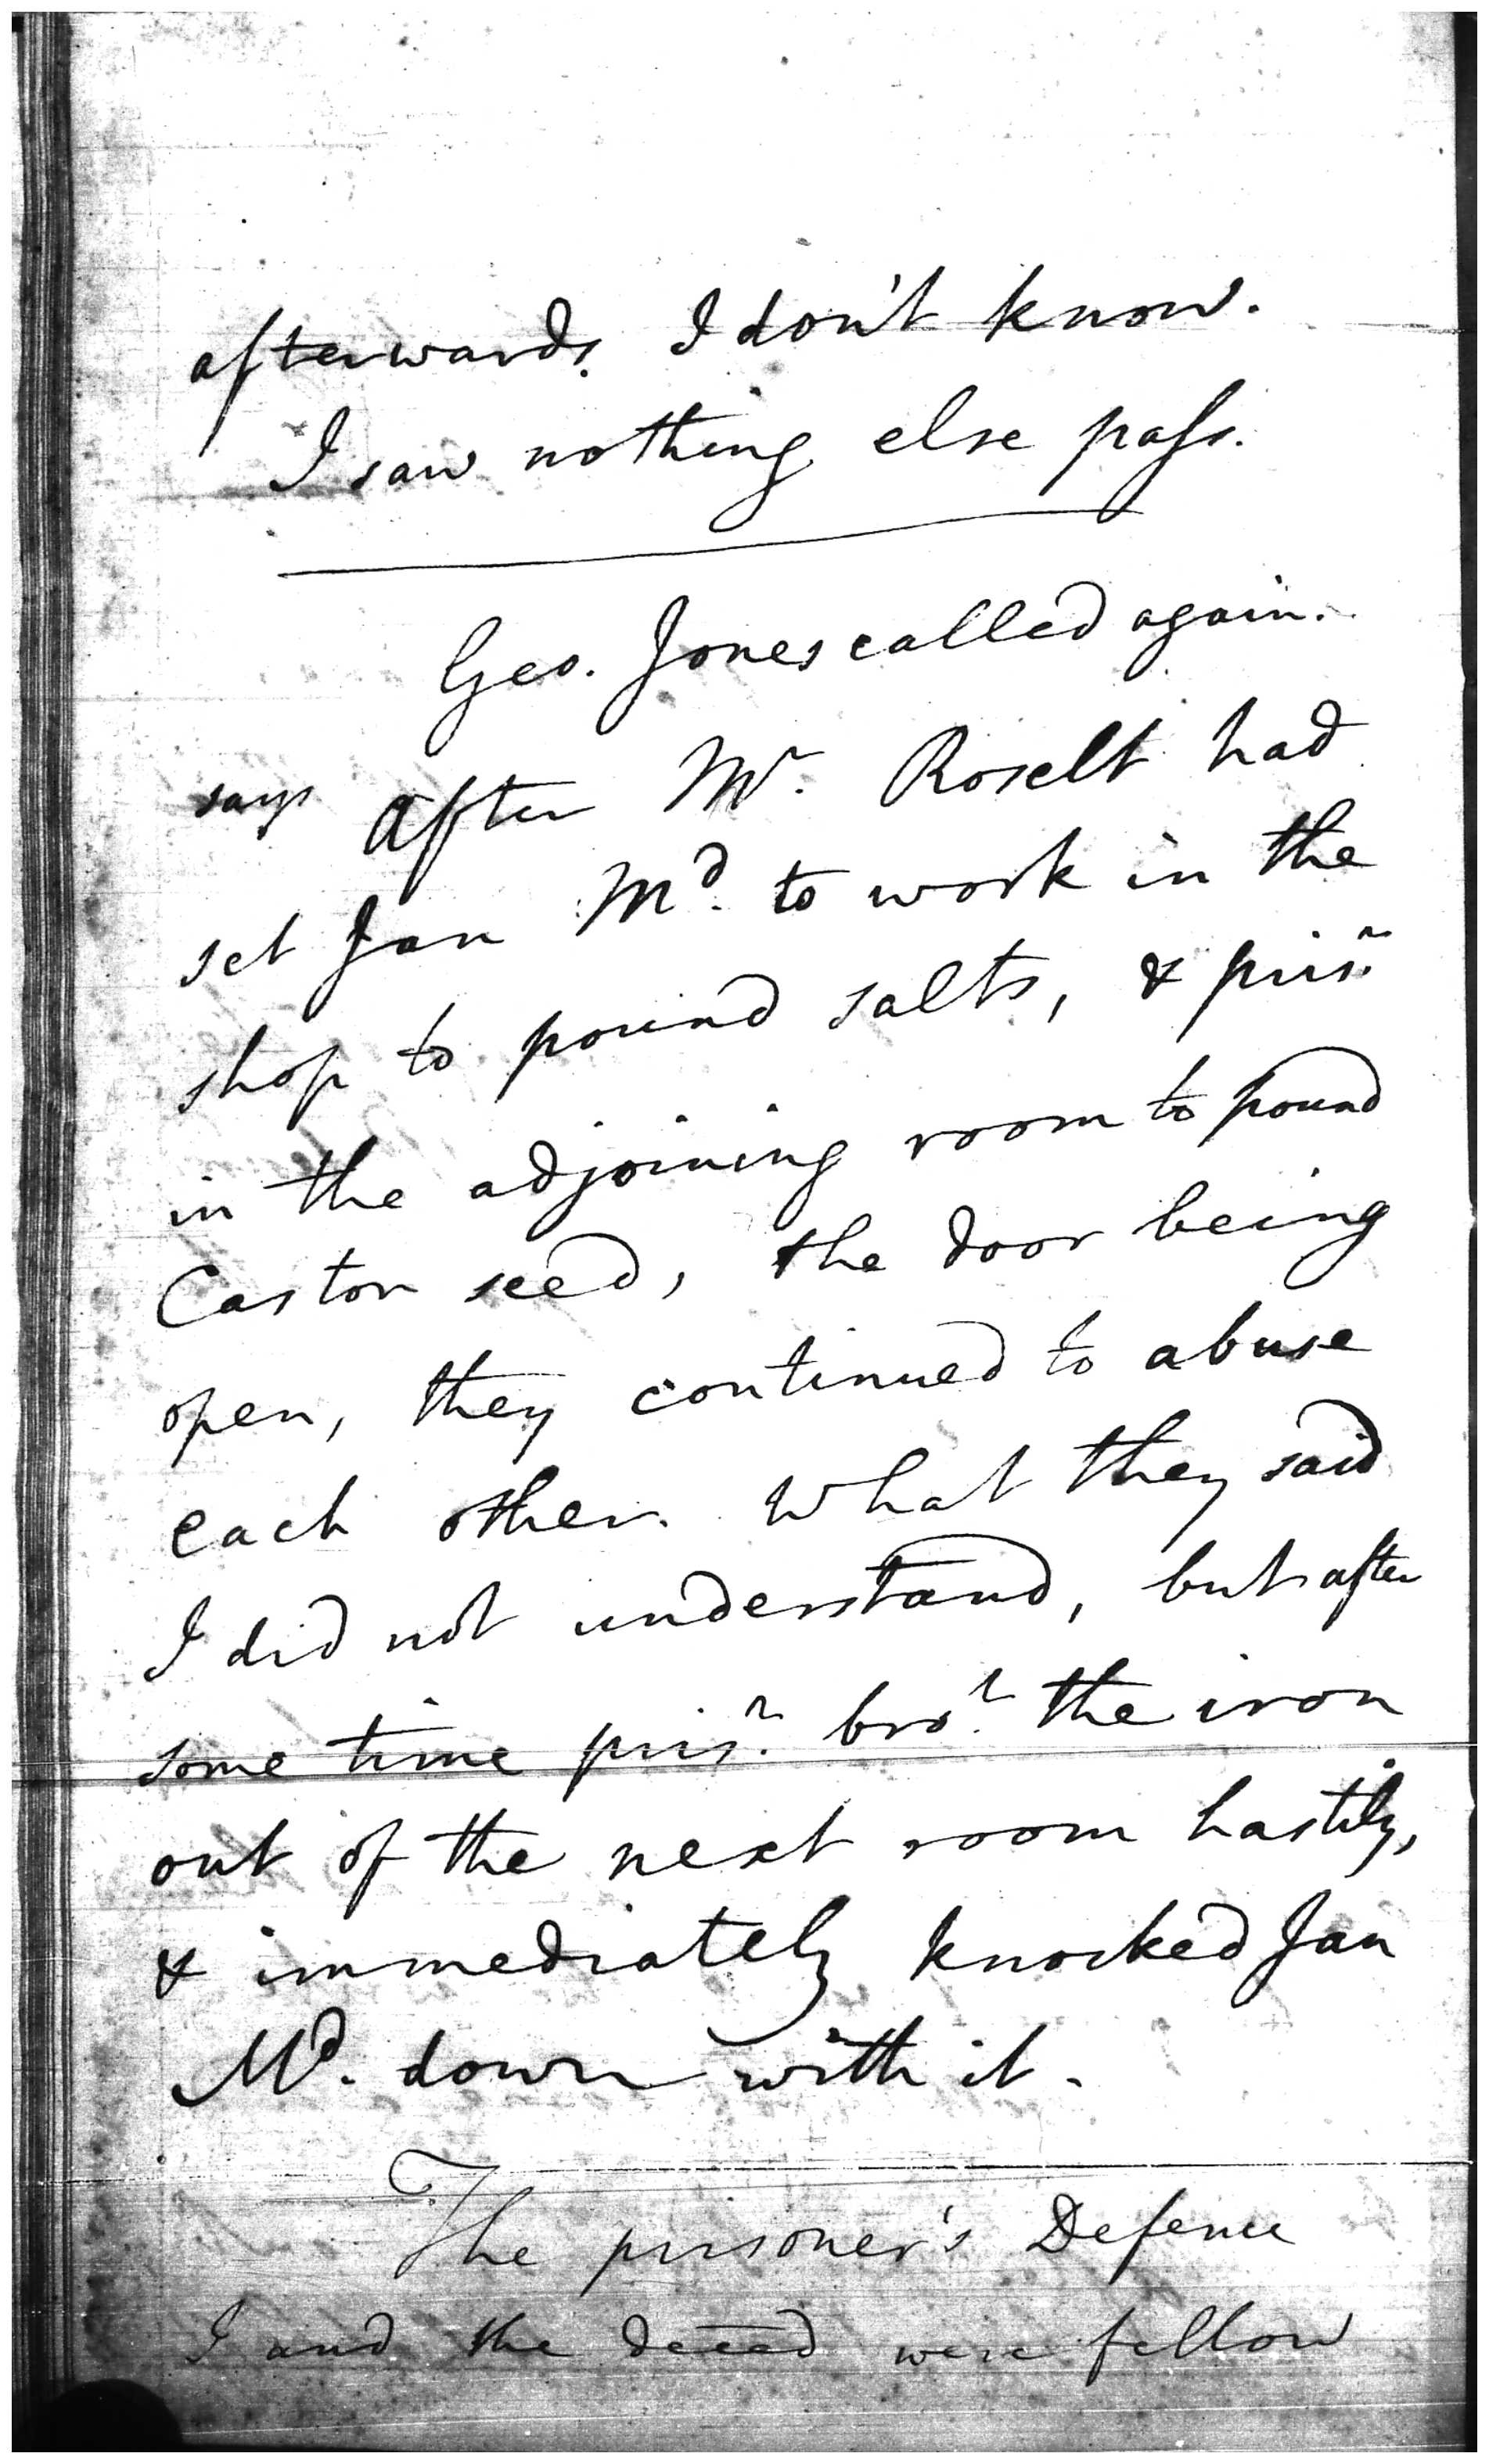 afterwards I don't know.
I saw nothing else pass.
Geo. Jones called again.
says after Mr. Roselt had
set Jan Md. to work in the
shop to pound salts, & prisr.
in the adjoining room to pound
Castor seed, the door being
open, they continued to abuse
each other. What they said
I did not understand, but after
some time prisr. brot. the iron
out of the next room hastily,
& immediately knocked Jan
Md. down with it.
The prisoner's Defence
I and the deced were fellow